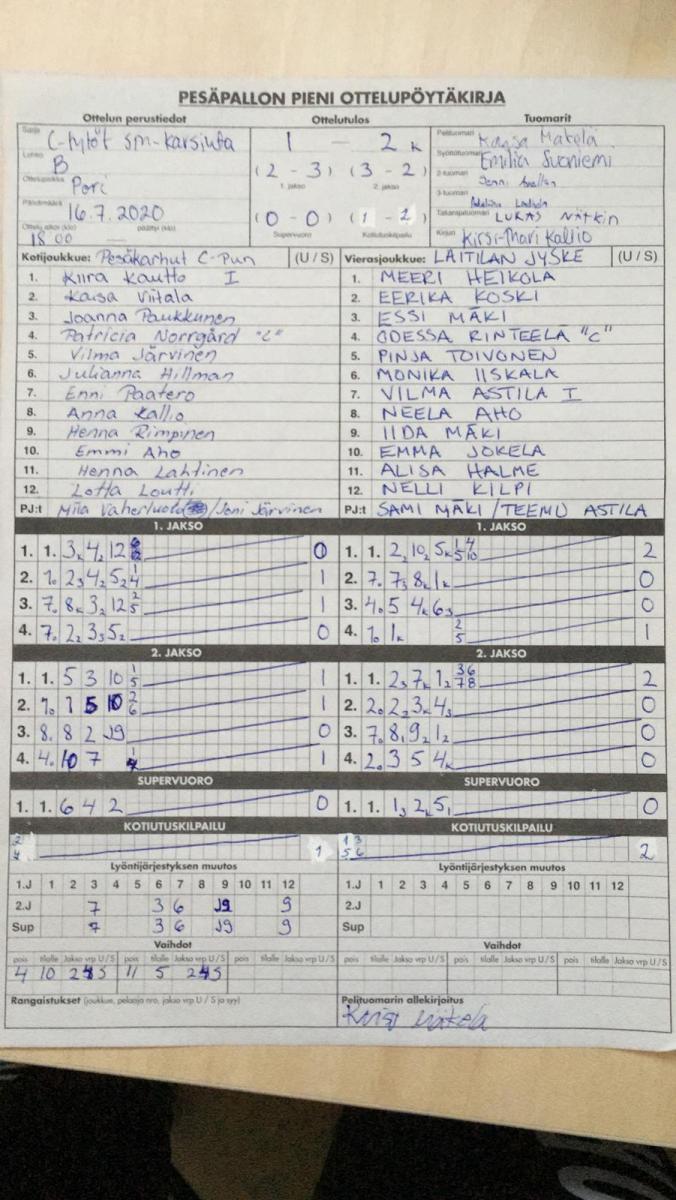 PESÄPALLON PIENI OTTELUPÖYTÄKIRJA
Ottelun perustiedot Ottelutulos Tuomarit
Sarja C-tytöt sm-karsinta 1 — 2 k Pelituomari Mäkelä
Lohko B (2 - 3) (3 - 2) Syöttötuomari Emilia Suoniemi
1. jakso 2. jakso
Ottelupaikka Pori 2-tuomari Jenni
Päivämäärä 16.7.2020 3-tuomari
(0 - 0) (1 - 2) Takarajatuomari LUKAS Nätkin
Ottelu alkoi (klo) 18.00 päättyi (klo) Supervuoro Kotiutuskilpailu Kirjuri Kirsi-Mari Kallio
Kotijoukkue: Pesäkarhut C-Pun (U / S) Vierasjoukkue: LAITILAN JYSKE (U / S)
1. Kiira Kautto I 1. MEERI HEIKOLA
2. Kaisa Viitala 2. EERIKA KOSKI
3. Joanna Paukkunen 3. ESSI MÄKI
4. Patricia Norrgård "C" 4. ODESSA RINTEELÄ "C"
5. Vilma Järvinen 5. PINJA TOIVONEN
6. Julianna Hillman 6. MONIKA IISKALA
7. Enni Paatero 7. VILMA ASTILA I
8. Anna Kallio 8. NEELA AHO
9. Henna Rimpinen 9. IIDA MÄKI
10. Emmi Aho 10. EMMA JOKELA
11. Henna Lahtinen 11. ALISA HALME
12. Lotta Loutti 12. NELLI KILPI
PJ:t Miia /Joni Järvinen PJ:t SAMI MÄKI / TEEMU ASTILA
1. JAKSO 1. JAKSO
1. 1. 3k 4, 12 0 1. 1. 2, 10, 5k 2
2. 7. 2 3 4 5 1 2. 7. 7 8 1k 0
3. 7. 8k 3 12 2 5 1 3. 4. 5 4k 6 0
4. 7. 2 3 5 0 4. 7. 1k 2 5 1
2. JAKSO 2. JAKSO
1. 1. 5 3 10 1 5 1 1. 1. 2 7k 1 3 6 7 8 2
2. 7. 1 5 10 2 6 1 2. 2. 2 3k 4 0
3. 8. 8 2 J9 0 3. 7. 8 9 1 0
4. 4. 10 7 1 4. 2. 3 5 4k 0
SUPERVUORO SUPERVUORO
1. 1. 6 4 2 0 1. 1. 1 2k 5 0
KOTIUTUSKILPAILU KOTIUTUSKILPAILU
2 4 1 1 3 5 6 2
Lyöntijärjestyksen muutos Lyöntijärjestyksen muutos
1.J 1 2 3 4 5 6 7 8 9 10 11 12 1.J 1 2 3 4 5 6 7 8 9 10 11 12
2.J 7 3 6 J9 9 2.J
Sup 7 3 6 J9 9 Sup
Vaihdot Vaihdot
pois tilalle Jakso vrp U / S pois tilalle Jakso vrp U / S pois tilalle Jakso vrp U / S pois tilalle Jakso vrp U / S pois tilalle Jakso vrp U / S pois tilalle Jakso vrp U / S
4 10 2 S 11 5 2 S
Rangaistukset (joukkue, pelaaja nro, jakso vrp U / S ja syy) Pelituomarin allekirjoitus
Mäkelä